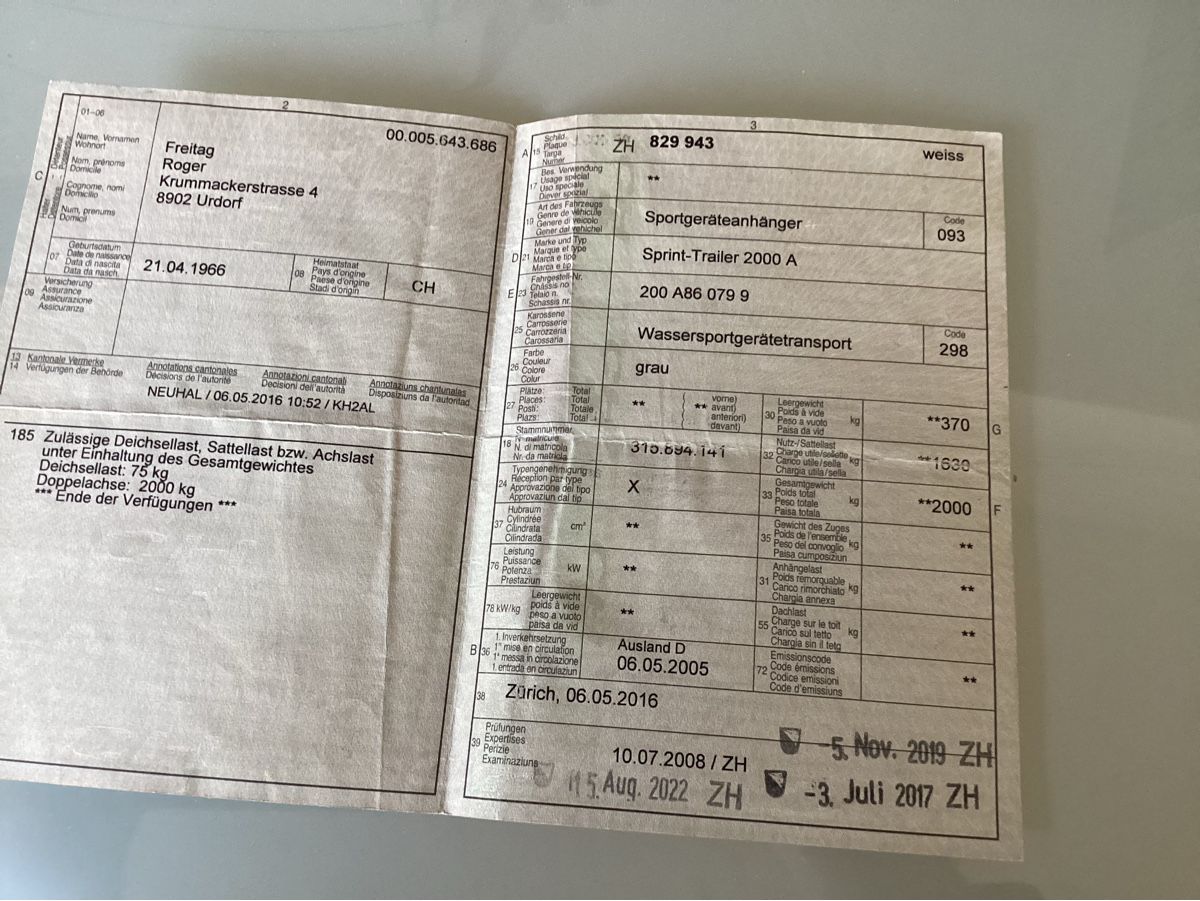 2
01–06
00.005.643.686
Name, Vornamen
Wohnort
Nom, prénoms
Domicile
Cognome, nomi
Domicilio
Num, prenums
Domicil
C
Freitag
Roger
Krummackerstrasse 4
8902 Urdorf
07
Geburtsdatum
Date de naissance
Data di nascita
Data da nasch.
21.04.1966
08
Heimatstaat
Pays d'origine
Paese d'origine
Stadi d'origin
CH
09
Versicherung
Assurance
Assicurazione
Assicuranza
13 Kantonale Vermerke
14 Verfügungen der Behörde
Annotations cantonales
Décisions de l'autorité
Annotazioni cantonali
Decisioni dell'autorità
Annotaziuns chantunalas
Disposiziuns da l'autoritad
NEUHAL / 06.05.2016 10:52 / KH2AL
185 Zulässige Deichsellast, Sattellast bzw. Achslast
unter Einhaltung des Gesamtgewichtes
Deichsellast: 75 kg
Doppelachse: 2000 kg
*** Ende der Verfügungen ***
3
A 15
Schild
Plaque
Targa
Numer
ZH 829 943 weiss
17
Bes. Verwendung
Usage spécial
Uso speciale
Diever spezial
**
19
Art des Fahrzeugs
Genre de véhicule
Genere di veicolo
Gener dal vehichel
Sportgeräteanhänger
Code
093
D 21
Marke und Typ
Marque et type
Marca e tipo
Marca e tip
Sprint-Trailer 2000 A
E 23
Fahrgestell-Nr.
Châssis no
Telaio n.
Schassis nr.
200 A86 079 9
25
Karosserie
Carrosserie
Carrozzeria
Carossaria
Wassersportgerätetransport
Code
298
26
Farbe
Couleur
Colore
Colur
grau
27
Plätze: Total
Places: Total
Posti: Totale
Plazs: Total
**
** vorne)
avant)
anteriori)
davant)
30
Leergewicht
Poids à vide
Peso a vuoto
Paisa da vid
kg
**370
G
18
Stammnummer
N° matricule
N. di matricola
Nr. da matricla
315.894.141
32
Nutz-/Sattellast
Charge utile/sellette
Carico utile/sella
Chargia utila/sella
kg
**1630
24
Typengenehmigung
Réception par type
Approvazione del tipo
Approvaziun dal tip
X
33
Gesamtgewicht
Poids total
Peso totale
Paisa totala
kg
**2000
F
37
Hubraum
Cylindrée
Cilindrata
Cilindrada
cm³
**
35
Gewicht des Zuges
Poids de l'ensemble
Peso del convoglio
Paisa cumposiziun
kg
**
76
Leistung
Puissance
Potenza
Prestaziun
kW
**
31
Anhängelast
Poids remorquable
Carico rimorchiato
Chargia annexa
kg
**
78 kW/kg
Leergewicht
poids à vide
peso a vuoto
paisa da vid
**
55
Dachlast
Charge sur le toit
Carico sul tetto
Chargia sin il tetg
kg
**
B 36
1. Inverkehrsetzung
1re mise en circulation
1a messa in circolazione
1. entrada en circulaziun
Ausland D
06.05.2005
72
Emissionscode
Code émissions
Codice emissioni
Code d'emissiuns
**
38
Zürich, 06.05.2016
39
Prüfungen
Expertises
Perizie
Examinaziuns
10.07.2008 / ZH
-5. Nov. 2019 ZH
15. Aug. 2022 ZH
-3. Juli 2017 ZH